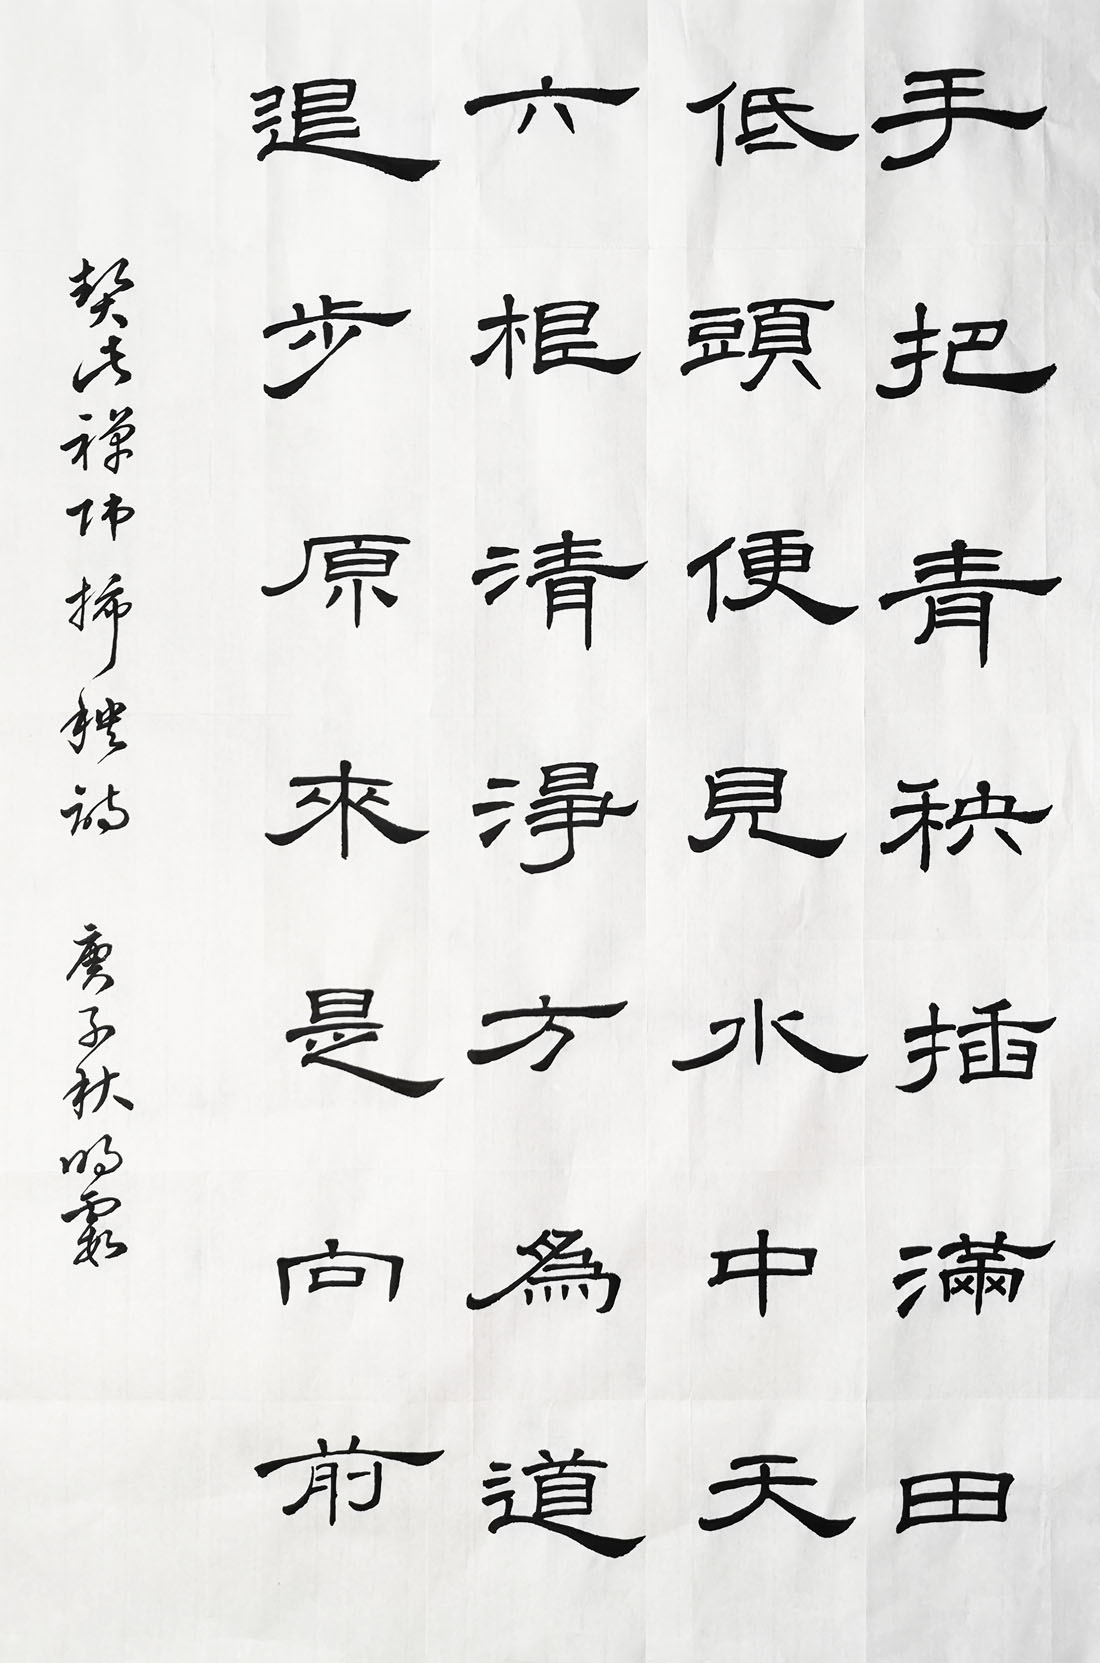 手把青秧插滿田
低頭便見水中天
六根清淨方為道
退步原來是向前
契此禪師插秧詩 庚子秋 明霞